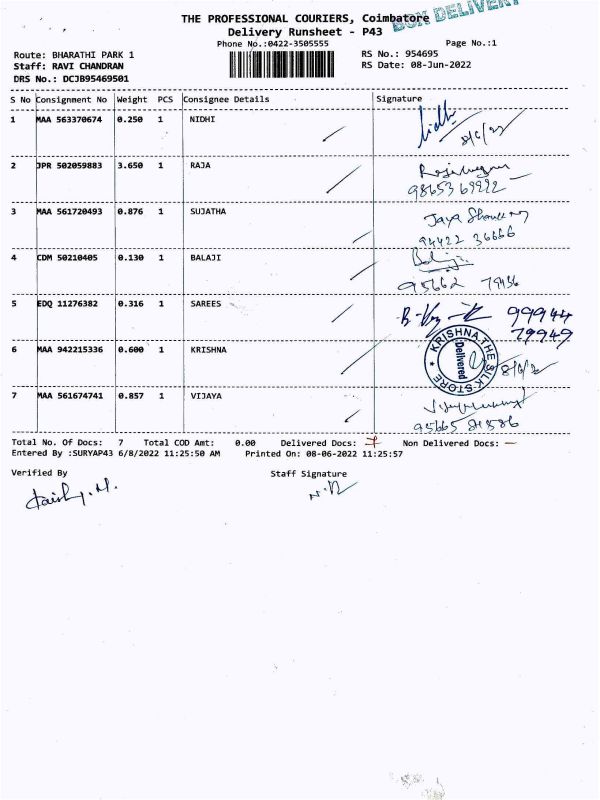 BOX DELIVERY
THE PROFESSIONAL COURIERS, Coimbatore
Delivery Runsheet - P43
Phone No.:0422-3505555
Page No.:1
Route: BHARATHI PARK 1
RS No.: 954695
Staff: RAVI CHANDRAN
RS Date: 08-Jun-2022
DRS No.: DCJB95469501
S No Consignment No Weight PCS Consignee Details Signature
1 MAA 563370674 0.250 1 NIDHI
8/6/22
2 JPR 502059883 3.650 1 RAJA
3 MAA 561720493 0.876 1 SUJATHA
94422 36666
4 CDM 50210405 0.130 1 BALAJI
5 EDQ 11276382 0.316 1 SAREES
99944
79949
6 MAA 942215336 0.600 1 KRISHNA
KRISHNA THE SILK STORE
Delivered
7 MAA 561674741 0.857 1 VIJAYA
Total No. Of Docs: 7 Total COD Amt: 0.00 Delivered Docs: 7 Non Delivered Docs: —
Entered By :SURYAP43 6/8/2022 11:25:50 AM Printed On: 08-06-2022 11:25:57
Verified By Staff Signature